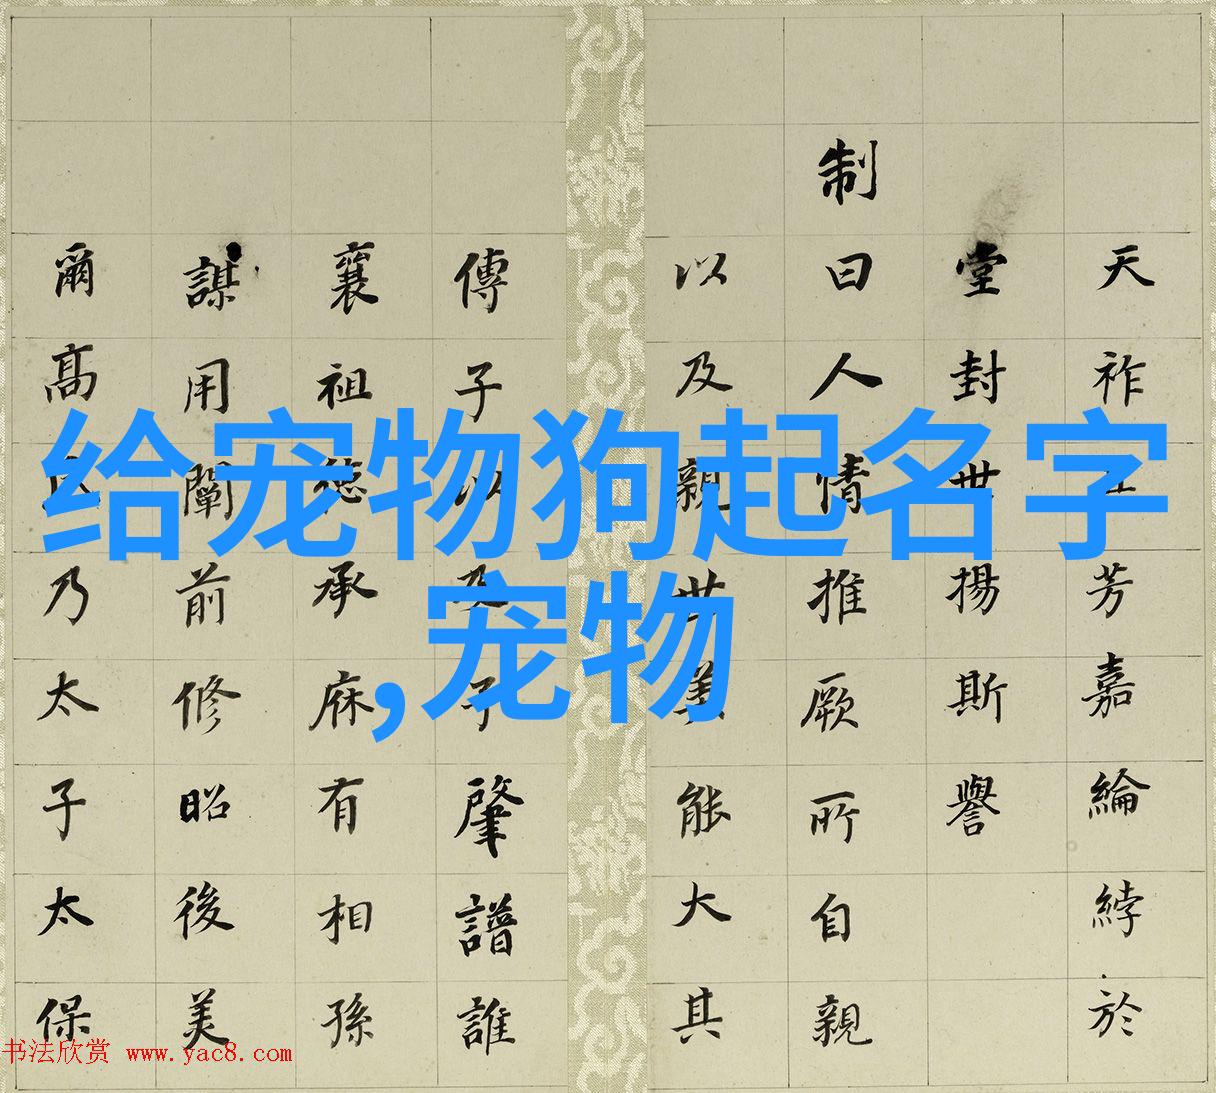 给宠物狗起名字
,宠物
天祚芳嘉綸綍於
堂封世揚斯譽
制曰人情推厥所自親
以及親世美能大其
傳子以及子肇譜誰
襄祖德承庥有相孫
謀用闡前修昭後美
爾高乃太子太保
书法欣赏 www.yac8.com